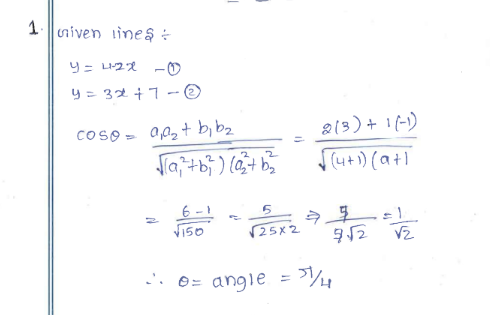 1. Given lines ÷
y = 4-2x - ①
y = 3x + 7 - ②
cosθ = a₁a₂ + b₁b₂ / √(a₁²+b₁²)(a₂²+b₂² = 2(3) + 1(-1) / √(4+1)(9+1
= 6-1 / √150 = 5 / √25×2 ⇒ 5 / 5√2 = 1 / √2
∴ θ = angle = π/4